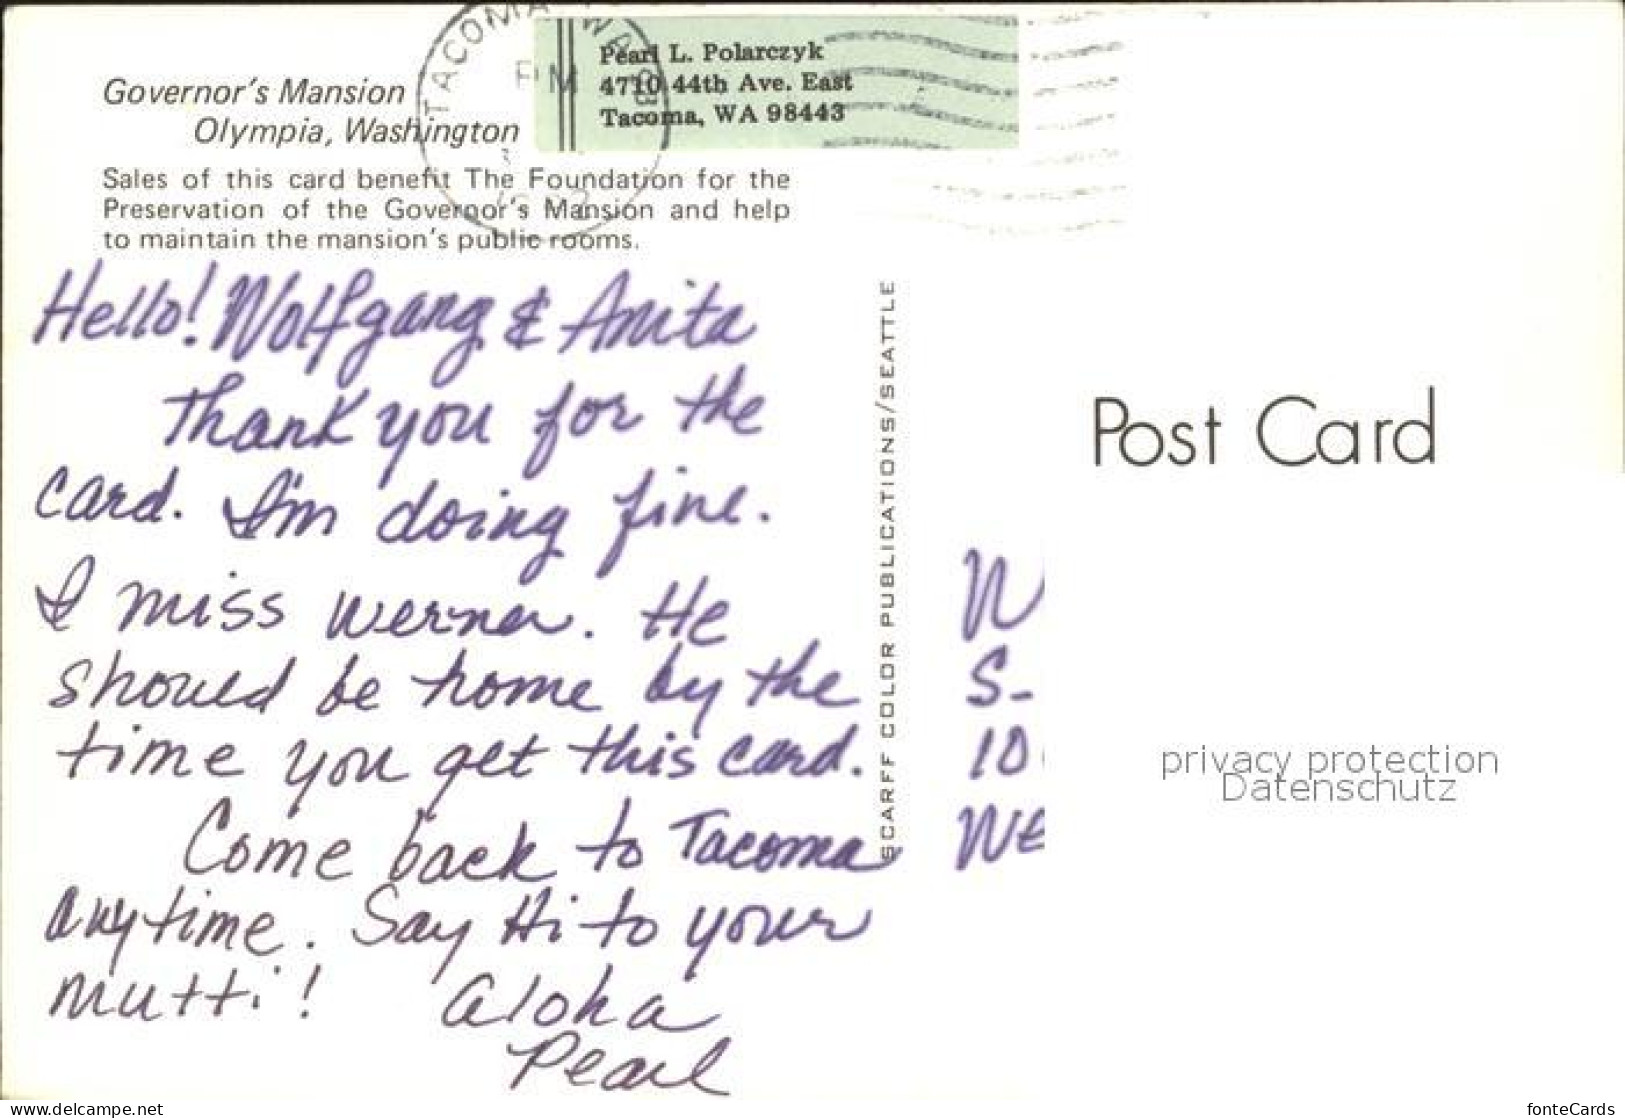 TACOMA, WA
PM
Pearl L. Polarczyk
4710 44th Ave. East
Tacoma, WA 98443
Governor's Mansion
Olympia, Washington
Sales of this card benefit The Foundation for the
Preservation of the Governor's Mansion and help
to maintain the mansion's public rooms.
Hello! Wolfgang & Anita
Thank you for the
card. I'm doing fine.
I miss Werner. He
should be home by the
time you get this card.
Come back to Tacoma
anytime. Say Hi to your
Mutti! Aloha
Pearl
SCARFF COLOR PUBLICATIONS/SEATTLE
Post Card
W
S-
10
WE
privacy protection
Datenschutz
www.delcampe.net
fonteCards